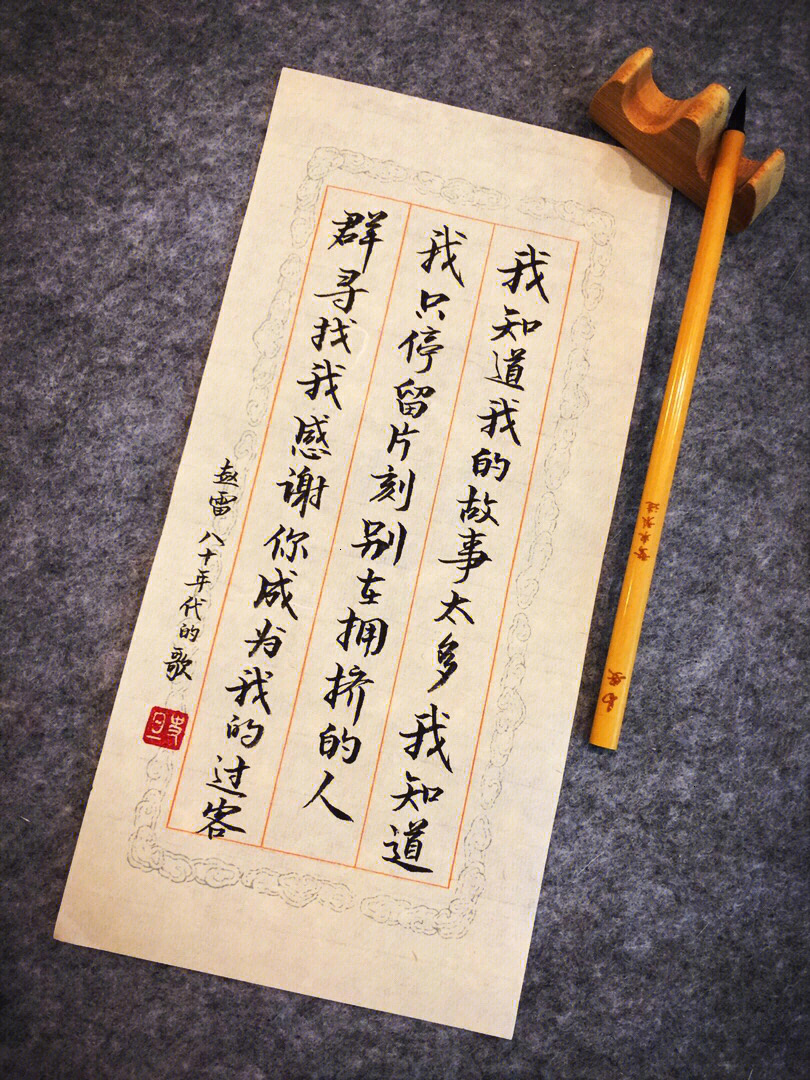 我知道我的故事太多我知道
我只停留片刻别在拥挤的人
群寻找我感谢你成为我的过客
赵雷八十年代的歌